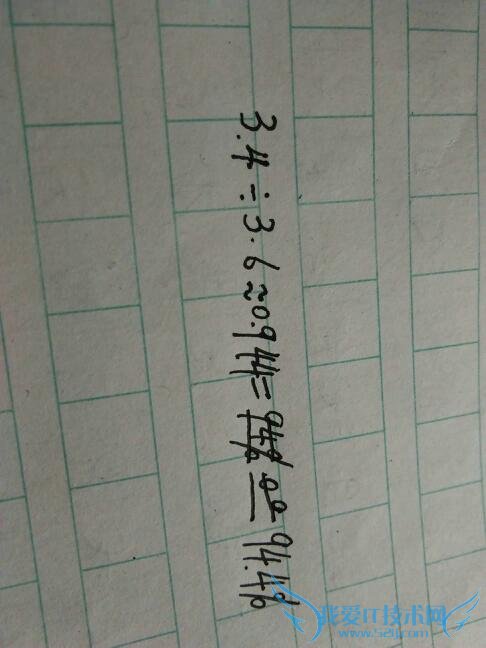 3.4÷3.6≈0.944=94.4%
我爱IT技术网
www.52ij.com